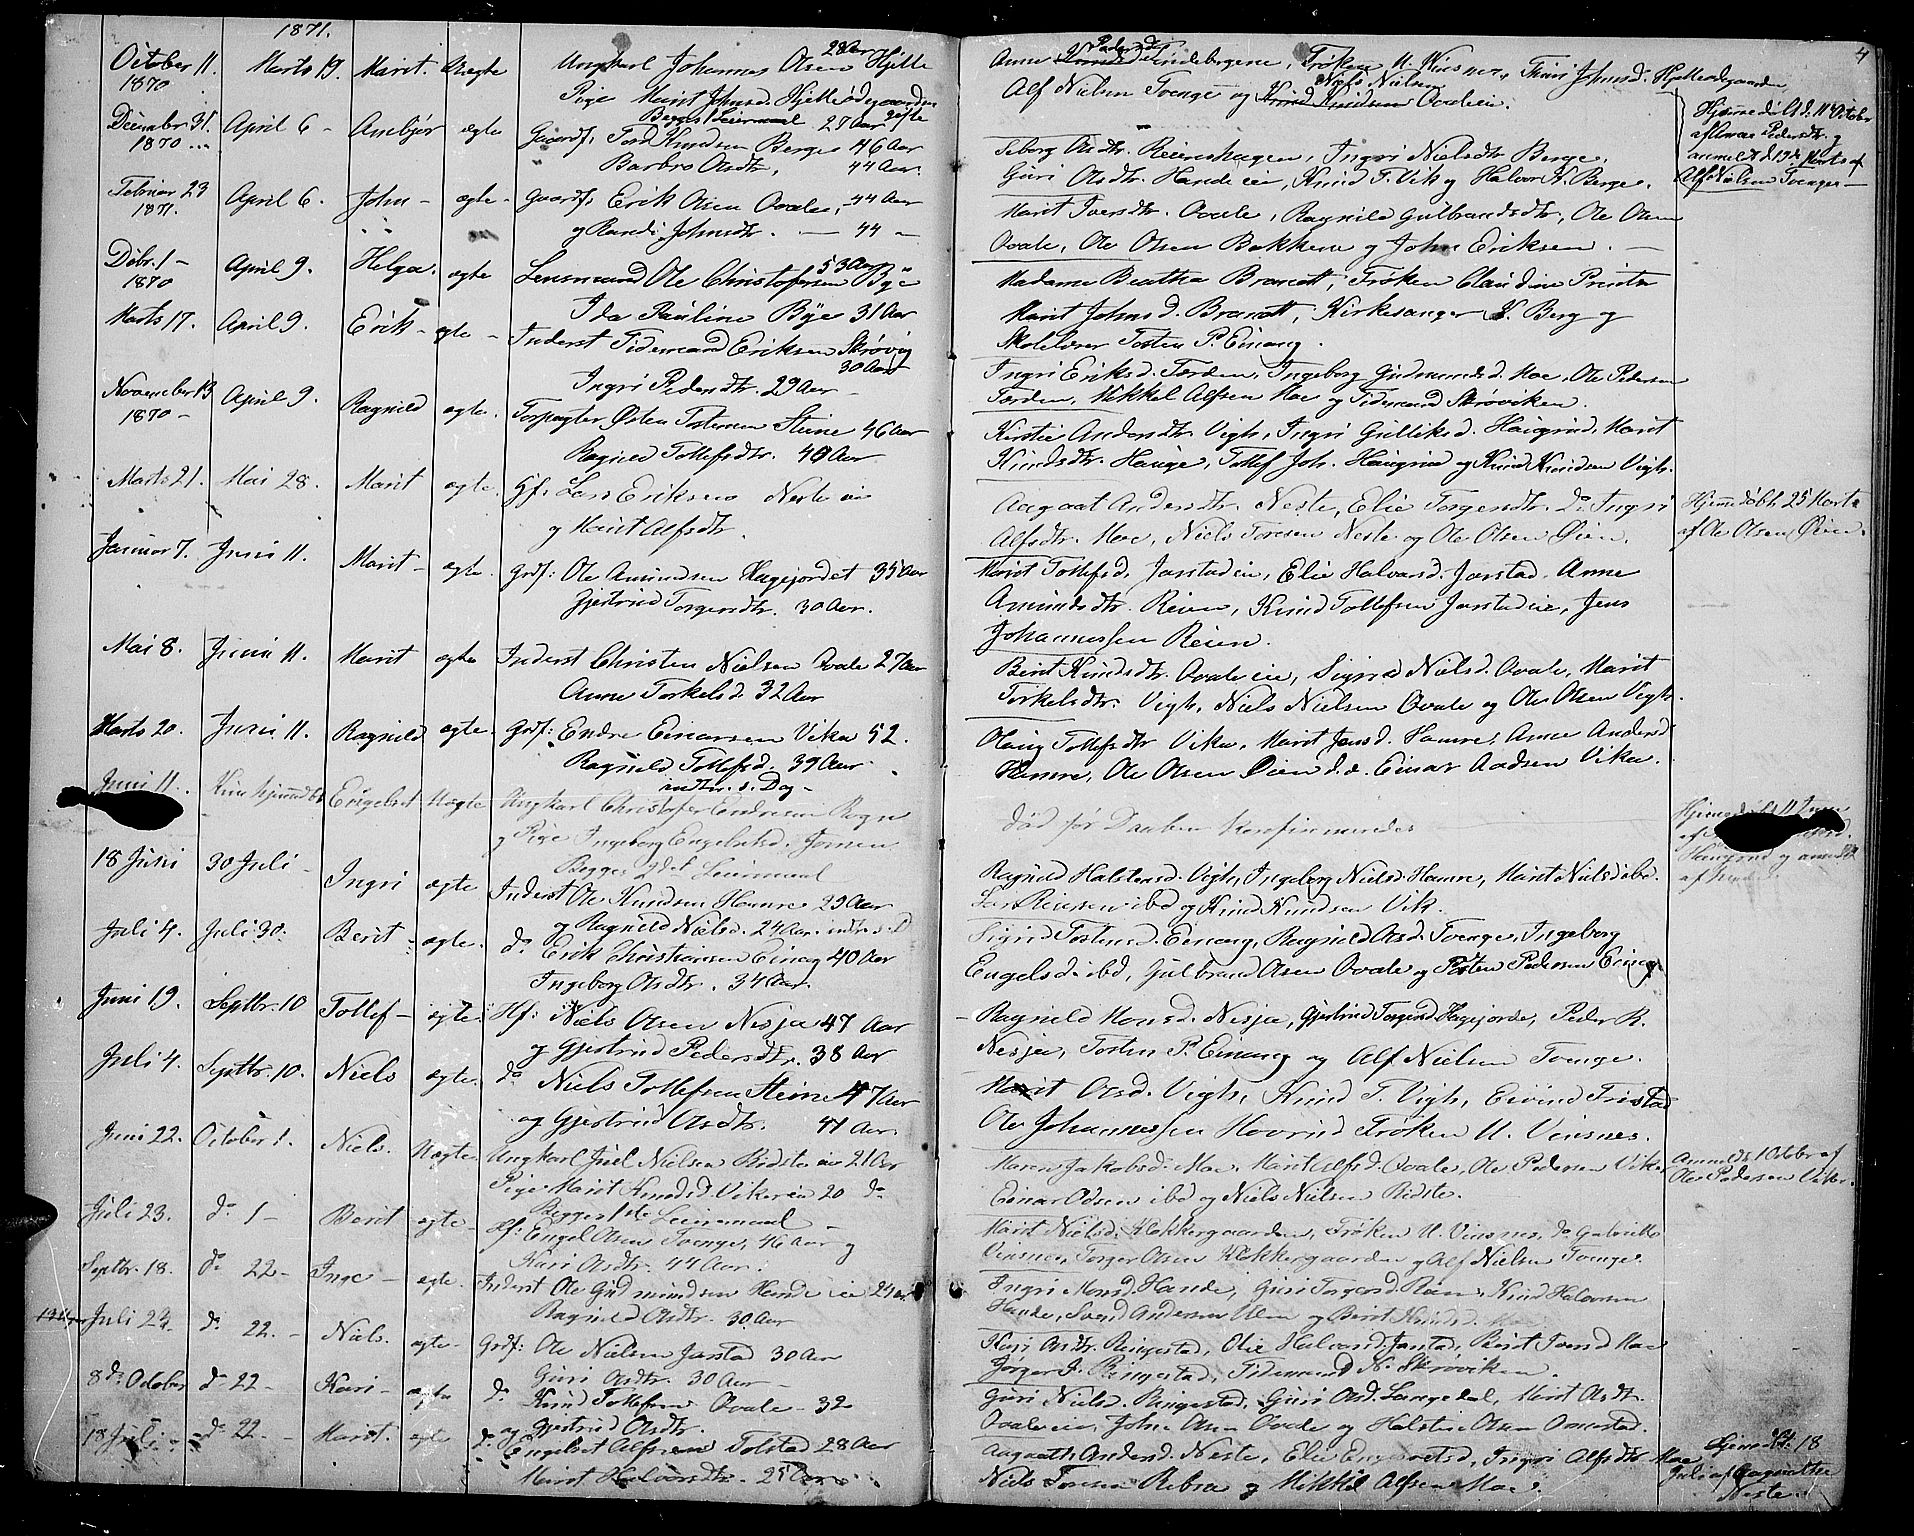 1871.
October 11. 1870 Marts 19. Marit. Uægte Ungkarl Johannes Olsen Hjelle 28 Aar
Pige Marit Johnsd. Hjelleødegaarden
Begges 1ste Leiermaal
December 31. 1870 April 6 - Ambjør ægte Gaardf. Tord Knudsen Berge 46 Aar
Barbro Olsdtr. 44 Aar.
Februar 23 1871. April 6. John - ægte - Gaardf. Erik Olsen Ovale, 44 Aar
og Randi Johnsdtr. - 44 -
Debr. 1 - 1870 April 9. Helga. ægte Lensmand Ole Christofersen Bye 53 Aar
Ida Pauline Bye 31 Aar
Marts 17. April 9. Erik - ægte - Inderst Tidemand Eriksen Skrøvig
30 Aar
Ingri Pedersdtr. 29 Aar -
November 13 1870 - April 9. Ragnild ægte. Torpagter Østen Tostensen Steine 46 Aar
Ragnild Tollefsdtr. 40 Aar.
Marts 21. Mai 28. Marit ægte. Gf: Lars Eriksen Neste eie
og Marit Alfsdtr.
Januar 7. Juni 11. Marit - ægte. Grdf: Ole Amundsen Hagejordet 35 Aar
Gjertrud Torgersdtr. 30 Aar.
Mai 8. Juni 11. Marit ægte Inderst Christen Nielsen Ovale 27 Aar
Anne Torkelsd. 32 Aar
Marts 20. Juni 11. Ragnild ægte. Grdf: Endre Einarsen Vika 52.
Ragnild Tollefsd. 39 Aar.
Juni 11. Engelbret Uægte Ungkarl Christofer Endresen Rogn
og Pige Ingeborg Engelbretsd. Jomen
Begges 2det Leiermaal
18 Juni 30 Juli - Ingri ægte Inderst Ole Knudsen Hamre 29 Aar
og Ragnild Nielsd. 24 Aar.
Juli 4. Juli 30. Berit - ægte. do Erik Christiansen Einang 40 Aar
Ingeborg Olsdtr. 34 Aar.
Juni 19. Septbr. 10 Tollef - ægte. Hf: Niels Olsen Nesja 47 Aar
og Gjertrud Pedersdtr. 38 Aar
Juli 4. Septbr. 10. Niels ægte. do Niels Tollefsen Steine 47 Aar
og Gjertrud Olsdtr. 41 Aar.
Juni 22. October 1. Niels. Uægte. Ungkarl Juel Nielsen Ridste eie 21 Aar
Pige Marit Knudsd. Vikeeie 20 do
Begges 1ste Leiermaal -
Juli 23. do 1 - Berit ægte - Hf: Engel Olsen Tvenge, 46 Aar og
Kari Olsdtr. 44 Aar.
Septbr. 18. do 22 - Inge - ægte. Inderst Ole Gudmundsen Hande eie 24 Aar
Ragnild Olsdtr. 30 Aar
Juli 23. do 22. - Niels. ægte - Grdf: Ole Nielsen Jarstad 30 Aar
Guri Olsdtr. 30 Aar -
8de October do 22 - Kari - ægte do Knud Tollefsen Ovale - 32
og Gjertrud Olsdtr.
18 Juli - do 22. - Marit. ægte do Engebret Alfsen Tolstad 28 Aar
Marit Halvorsdtr. 25 Aar.
4
Anne Pedersdtr Lindebergene, Frøken U. Vinsnes, Thuri Johnsd. Hjelleødegaarden
Alf Nielsen Tvenge og Nils Nielsen Ovaleeie.
Hjemmedøbt d. 11te October
af Anne Pedersdtr. og
anmeldt d 19de Marts af
Alf Nielsen Tvenge -
Seborg Olsdtr. Reienshagen, Ingri Nielsdtr Berge,
Guri Olsdtr. Hande eie, Knud T. Vik og Halvor K. Berge.
Marit Iversdtr. Ovale, Ragnild Gulbrandsdtr, Ole Olsen
Ovale, Ole Olsen Bakkene og John Eriksen. -
Madame Beathe Brandt, Frøken Claudine Printz
Marit Johnsd. Brandt, Kirkesanger L. Berg og
Skolelærer Tosten P. Einang.
Ingri Eriksd. Førden, Ingeborg Gudmundsd. Moe, Ole Pedersen
Førden, Mikkel Alfsen Moe og Tidemand Skrøviken.
Kirstie Andersdtr. Vigh, Ingri Gulliksd. Haugrud, Marit
Knudsdtr. Hauge, Tollef Joh. Haugrud og Knud Knudsen Vigh.
Aagaat Andersdtr. Neste, Elie Torgersdtr. do Ingri
Alfsdtr. Moe, Niels Toresen Neste og Ole Olsen Øien.
Hjemmedøbt 25 Marts
af Ole Olsen Øien.
Marit Tollefsd. Jarstadeie, Elie Halvorsd. Jarstad, Anne
Amundsdtr. Reien, Knud Tollefsen Jarstadeie, Jens
Johannessen Reien.
Berit Knudsdtr. Ovaleeie, Sigrid Nielsd. Ovale, Marit
Torkelsdtr. Vigh, Niels Nielsen Ovale og Ole Olsen Vigh.
Olaug Tollefsdtr Vika, Marit Jensd. Hamre, Anne Andersd
Hamre, Ole Olsen Øien d.e. Einar Oddsen Vika.
død før Daaben Konfirmeredes
Hjemmedøbt 11 Juni
Ragnild Halstensd. Vigh, Ingeborg Nielsd. Hamre, Marit Nielsd ibd.
ibd og Knud Knudsen Vik.
Sigrid Tostensd. Einang, Ragnild Olsd. Tvenge, Ingeborg
Engelsd. ibd, Gulbrand Olsen Ovale og Tosten Pedersen Einang.
Ragnild Monsd. Nesja, Gjertrud Torgersd Hagejorde, Peder R.
Nesja, Tosten P. Einang og Alf Nielsen Tvenge.
Marit Olsd. Vigh, Knud T. Vigh, Eivind Fristad
Ole Johannessen Hovrud Frøken U. Vinsnes.
Maren Jakobsd. Moe, Marit Alfsd. Ovale, Ole Pedersen Vike
Einar Odsen ibd og Niels Nielsen Ridste.
Anmeldt 1 Octbr af
Ole Pedersen Vike.
Marit Nielsd. Klokkergaarden, Frøken U. Vinsnes, do Gabrielle
Vinsnes, Torger Olsen Klokkergaarden og Alf Nielsen Tvenge.
Ingri Monsd. Hande, Guri Torgersd. Rein, Knud Halvorsen
Hande, Svend Andersen Ulen og Berit Knudsd.
Kari Olsdtr. Ringestad, Elie Halvorsd. Jarstad, Berit Iversd Moe
Jørger J. Ringestad, Tidemand N. Skrøviken.
Guri Nielsd. Ringestad, Guri Olsd. Langedal, Marit Olsdtr.
Ovaleeie, John Olsen Ovale og Halsten Olsen Omestad.
Aagaath Andersd. Neste, Elie Engebretsd, Ingri Alfsdtr Moe
Niels Toresen Rebra og Mikkel Alfsen Moe.
Hjemmedbt. 18
Juli af Aagaathe
Neste.